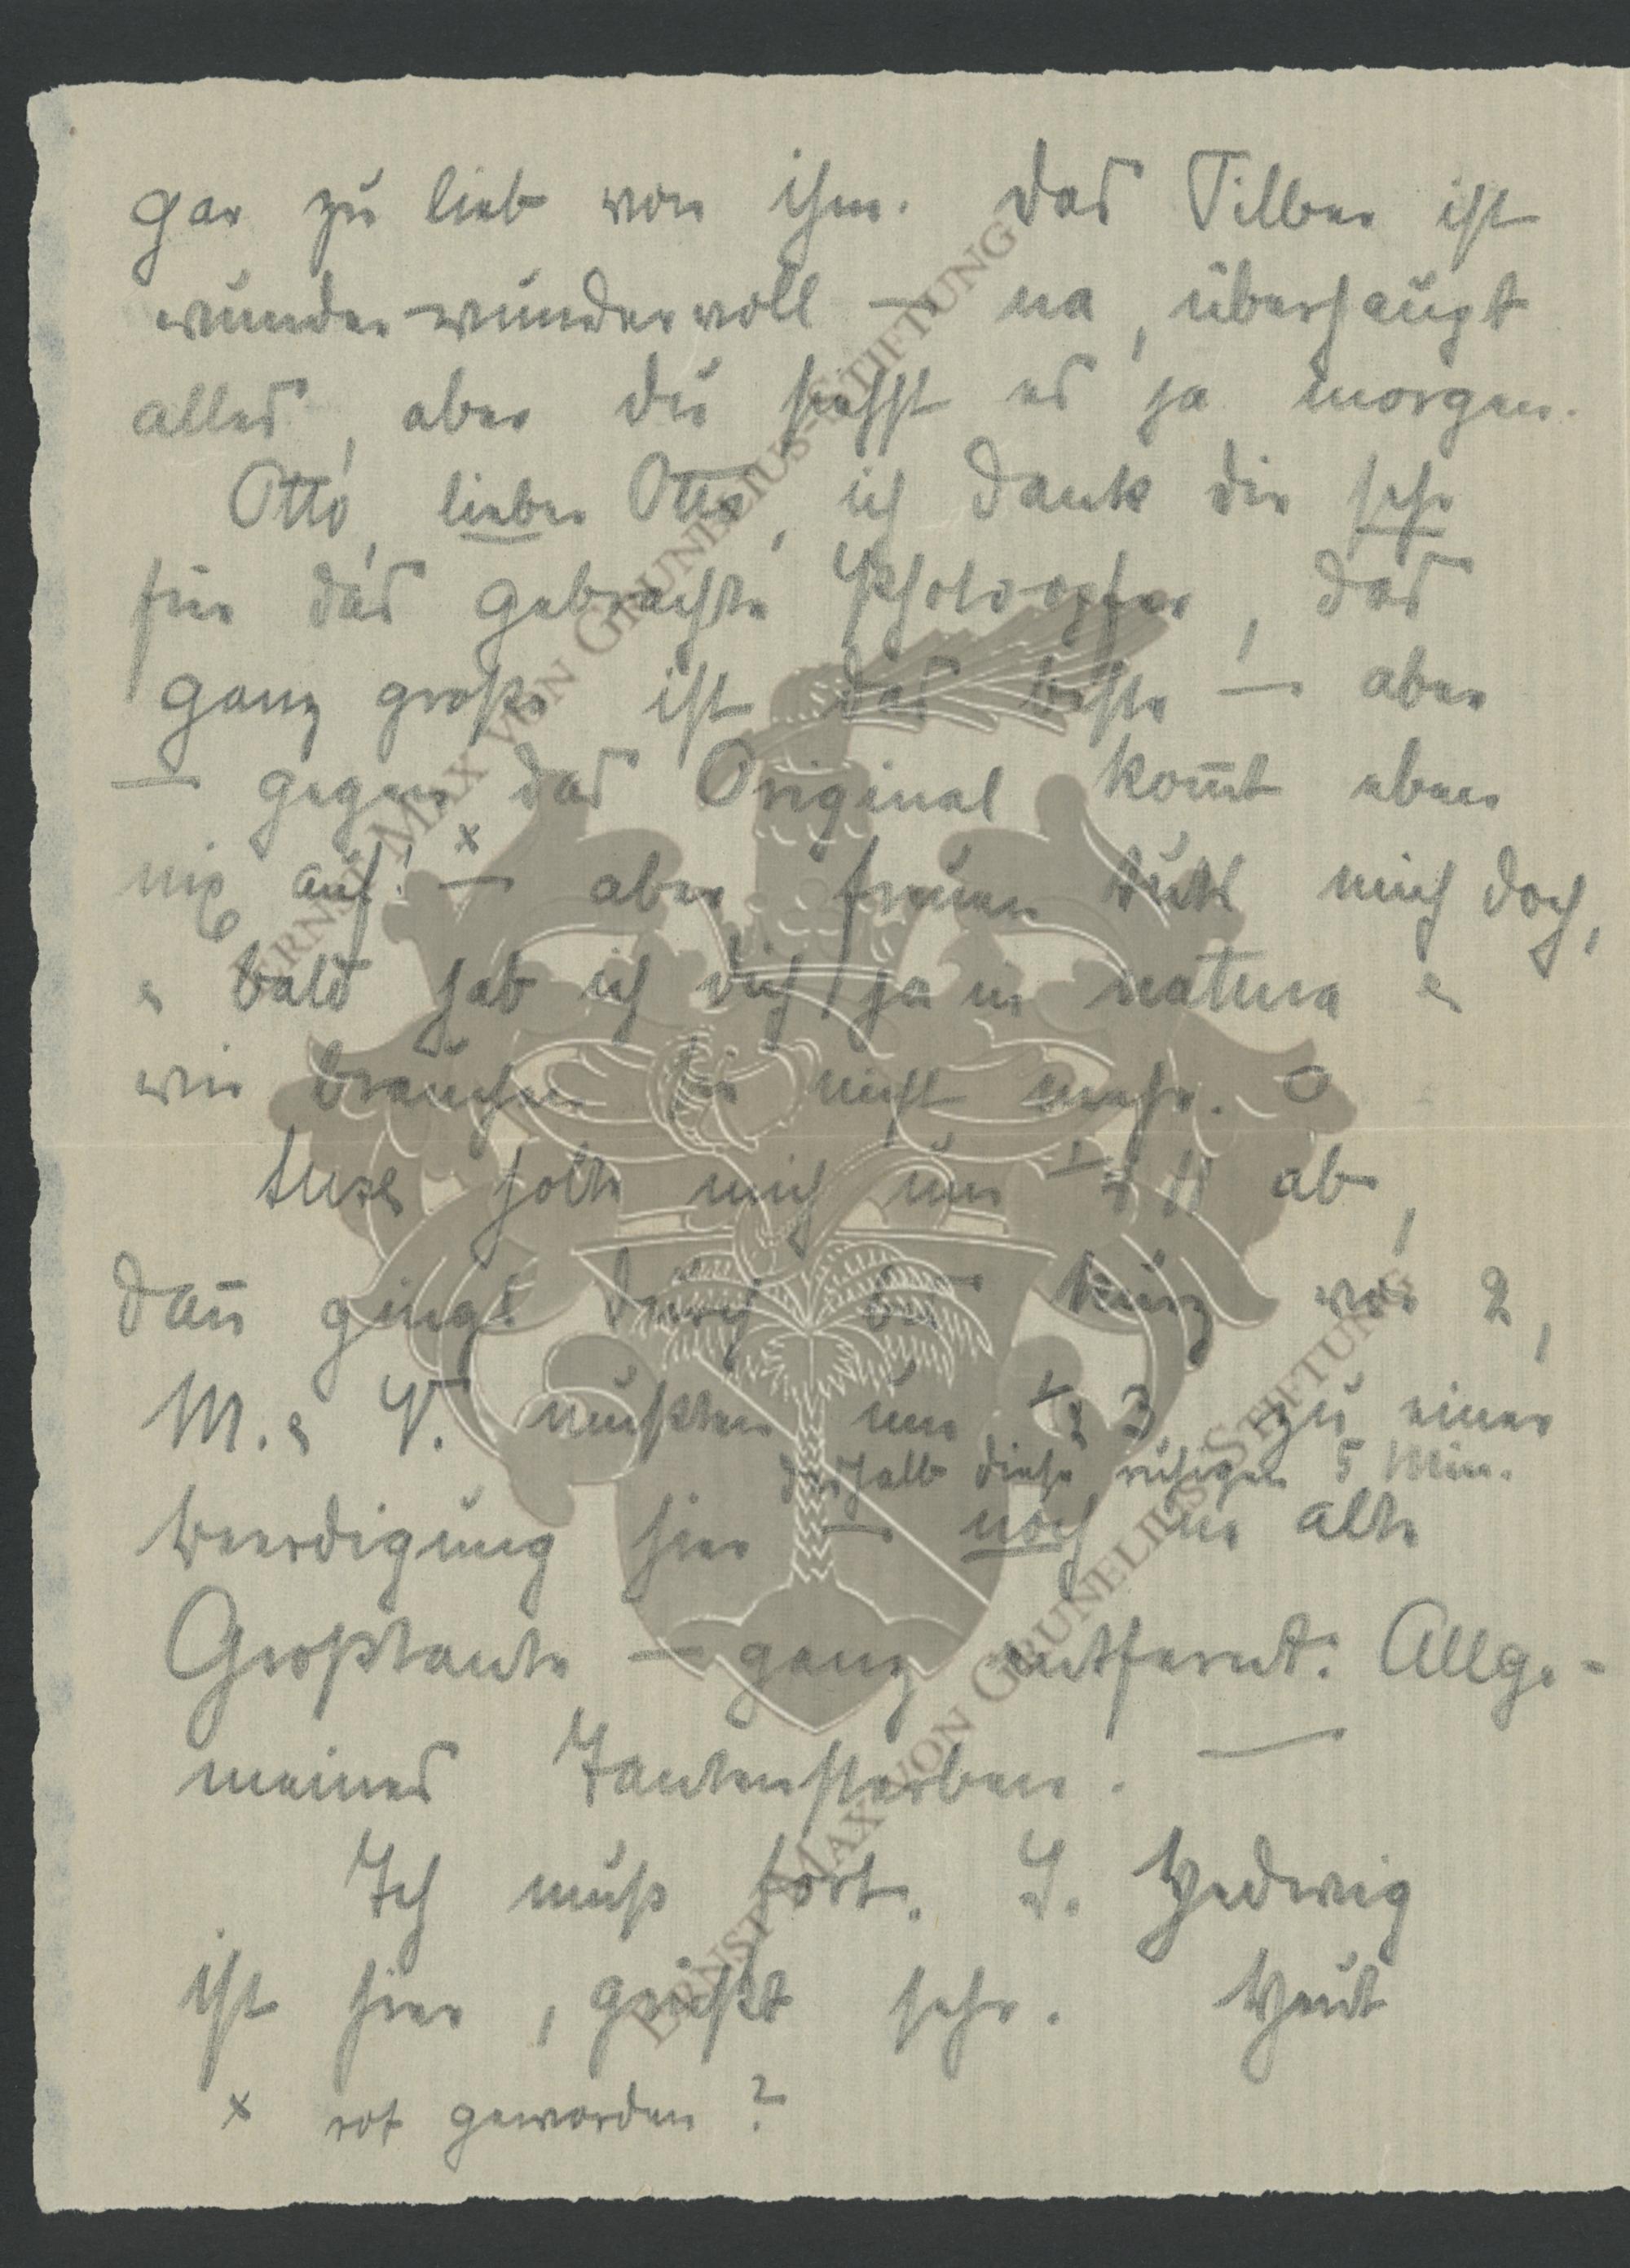 gar zu lieb von ihm. Das Silber ist
wunder-wundervoll — na, überhaupt
alles, aber du siehst es ja morgen.
Otto, lieber Otto, ich dank dir sehr
für das gebrachte Photo, das
ganz große ist das beste — aber
— gegen das Original kom̄t eben
nix auf! x — aber freuen tuts mich doch,
& bald hab ich dich ja in natura &
wir brauchen nicht mehr.
holte mich um ½ 11 ab,
dan̄ gings durch bis kurz vor 2,
M. & V. mußten um ½ 3 zu einer
deshalb diese ruhigen 5 Min.
Beerdigung hier — noch ne alte
Großtante — ganz entfernt. Allge-
meines Tantensterben. —
Ich muß fort. T. Hedwig
ist hier, grüßt sehr. Heut
x rot geworden?
ERNST MAX VON GRUNELIUS-STIFTUNG
ERNST MAX VON GRUNELIUS-STIFTUNG